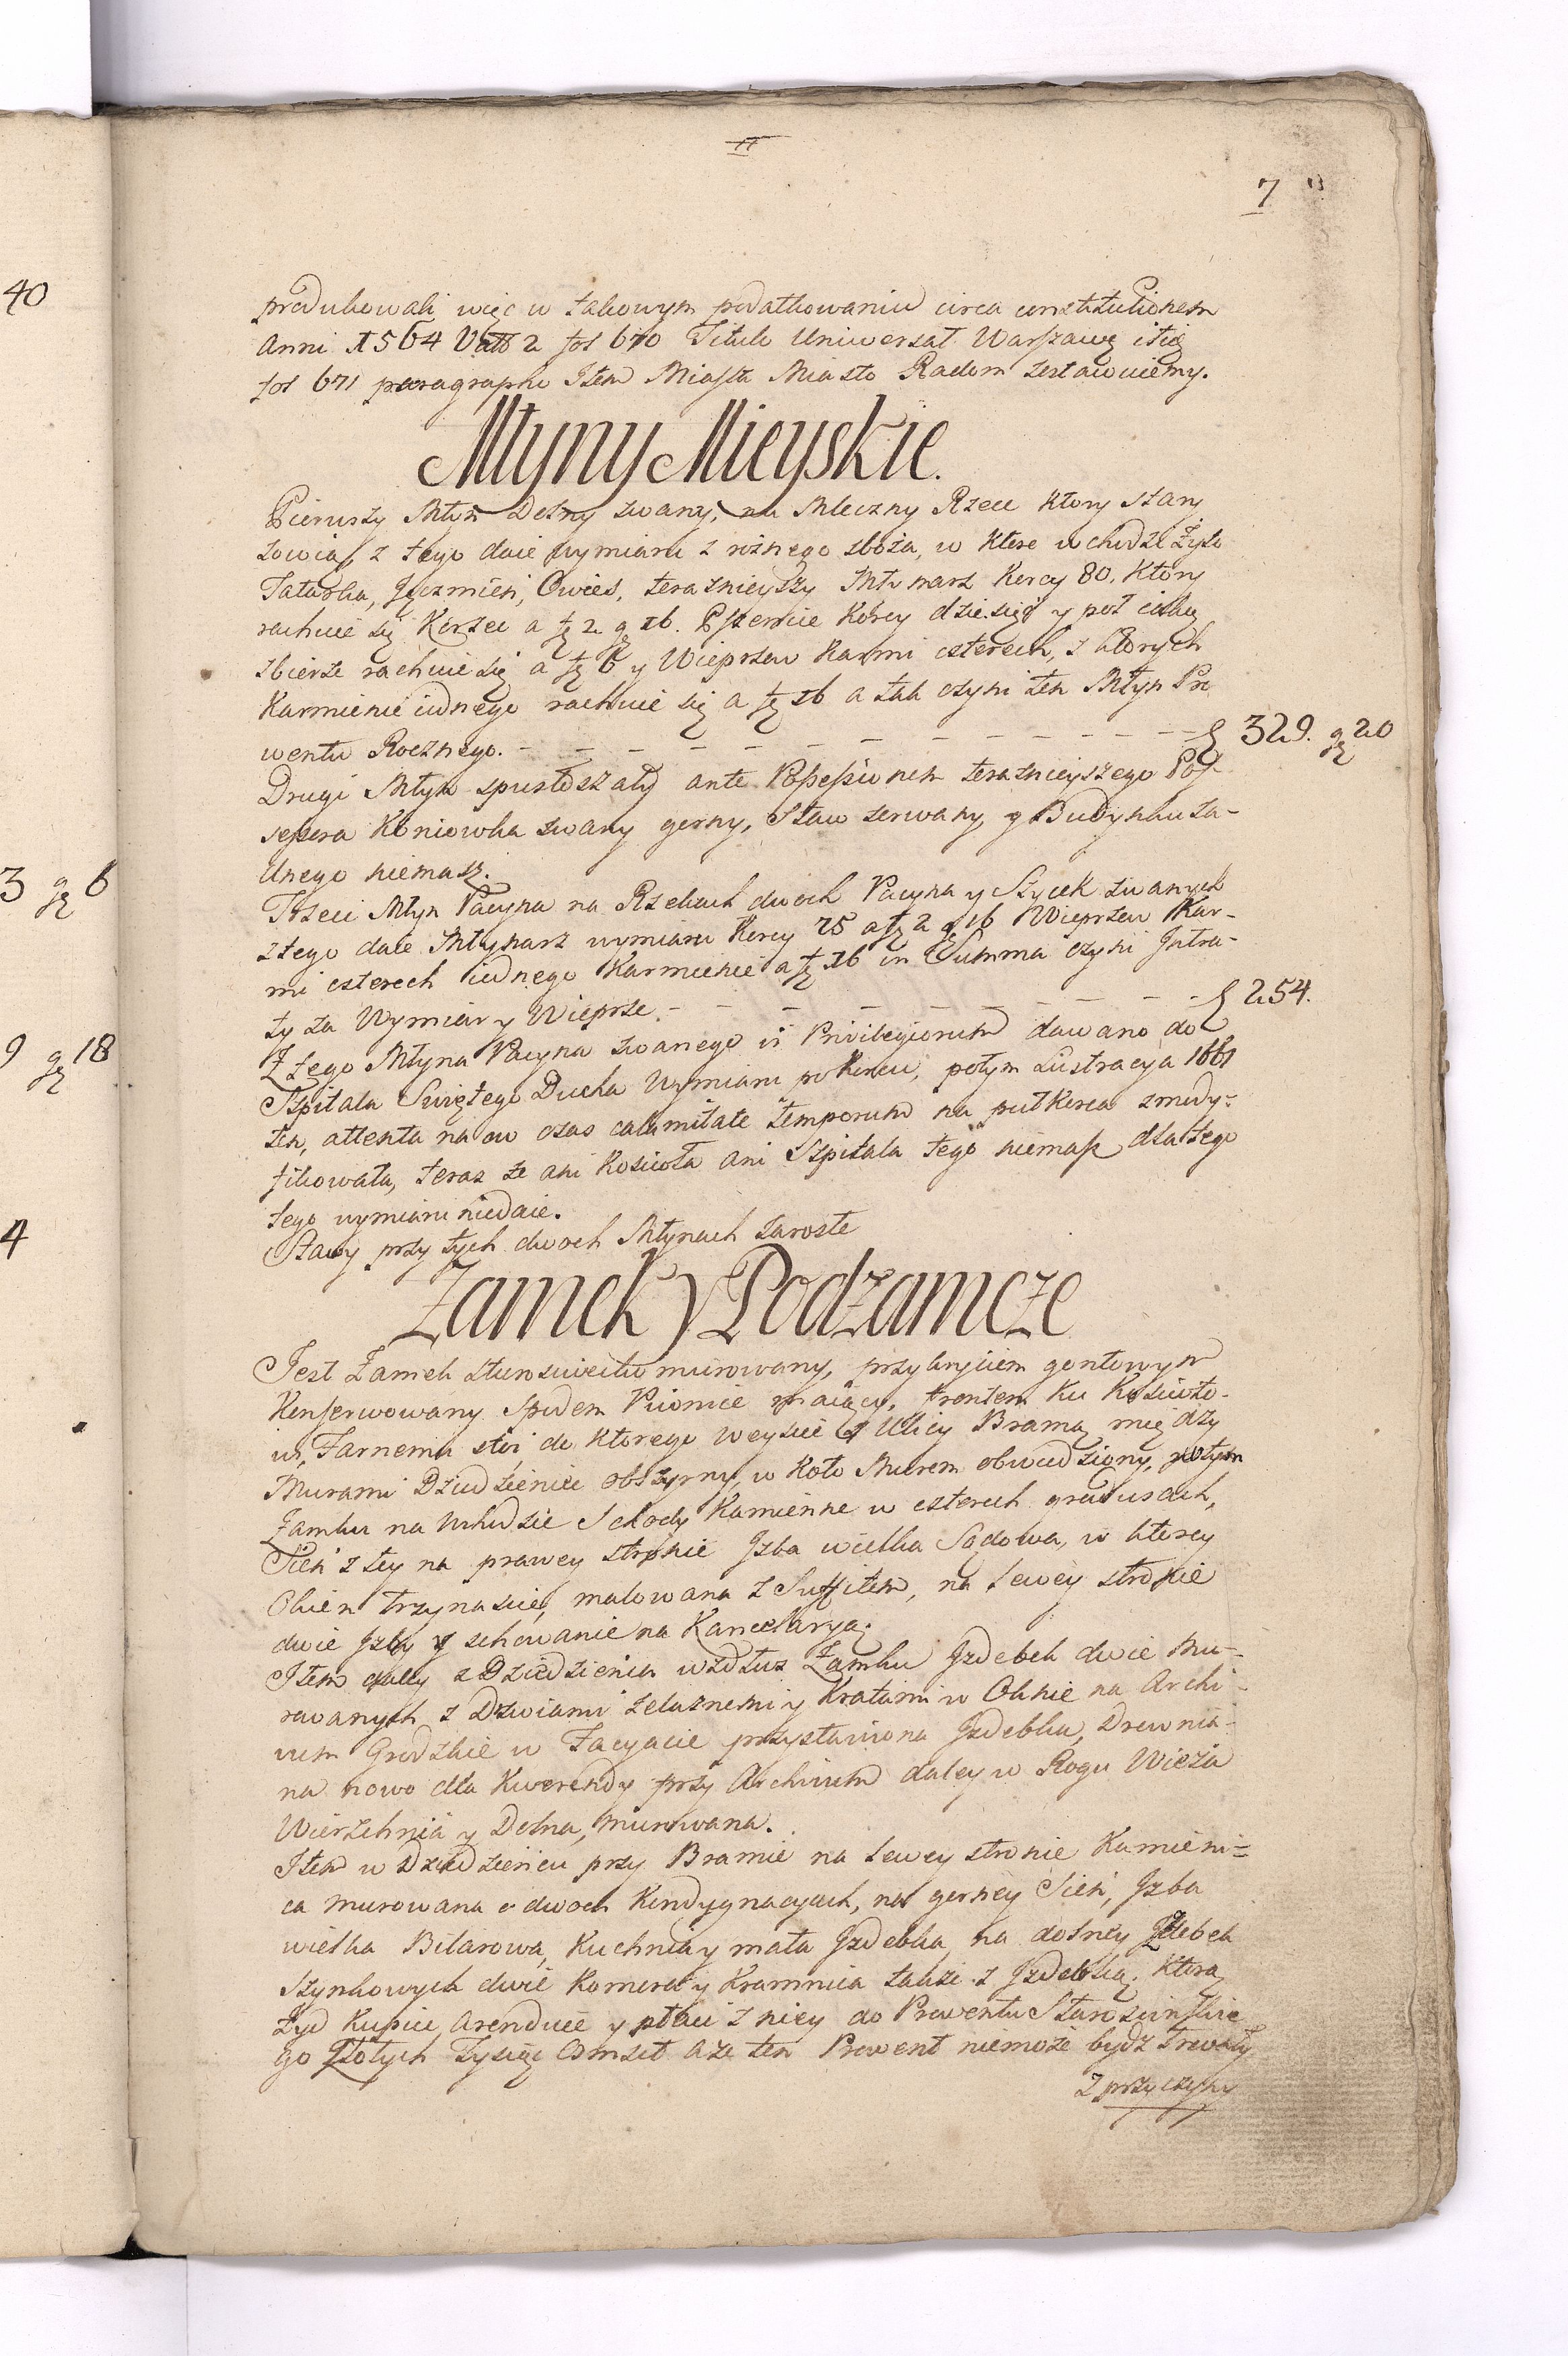 11
7
40
produkowali więc w takowym podatkowaniu circa constitutionem
Anni 1564 Voll 2 fol 670 Titulo Uniwersał Warszawę
fol 671 paragrapho Item Miasta Miasto Radom zostawuiemy.
Młyny Mieyskie.
Pierwszy Młyn Dolny zwany, na Mleczny Rzece ktory stary
zowią, z tego daie wymiaru z roznego zboża, w ktore wchodzi Żyto
Tatarka, Jęczmień, Owies, teraznieyszy Młynarz Korcy 80. ktory
rachuie się Korzec a fl 2 gr 16. Pszenice Korcy dziesięć y poł
zbierze rachuie się a fl 6 y Wieprzow karmi czterech, z ktorych
Karmienie iednego rachuie się a fl 16 a tak czyni ten Młyn Pro
wentu Rocznego. - - - - - - - - - - - - fl 329. gr 20
Drugi Młyn spustoszały ante Possessionem teraznieyszego Pos-
sessora Koniowka zwany gorny, Staw zerwany y Budynku ża-
dnego niemasz.
3 gr 6
Trzeci Młyn Pacyna na Rzekach dwoch Pacyna y Stycek zwanych
z tego daie Młynarz wymiaru Korcy 75 a fl 2 gr 16 Wieprzow Kar-
mi czterech iednego Karmienie a fl 16 in Summa czyni Intra-
ty za Wymiar y Wieprze. - - - - - - - - - fl 254.
Z tego Młyna Pacyna zwanego vi Privilegiorum dawano do
9 gr 18
Szpitala Swiętego Ducha Wymiaru po Korcu, potym Lustracya 1661
ten, attenta na ow czas calamitate temporum na puł Korca zmody-
fikowała, teraz że ani Koscioła ani Szpitala tego niemasz dlatego
tego wymiaru niedaie.
4
Stawy przy tych dwoch Młynach zarosłe
Zamek y Podzamcze
Jest Zamek staroswiecko murowany, przykryciem gontowym
Konserwowany Spodem Piwnice maiący, frontem ku Koscioło-
wi, Farnemu stoi do ktorego weyscie z Ulicy Bramą między
Murami Dziedzieniec obszyrny, w koło Murem obwiedziony, potym
Zamku na wchodzie Schody Kamienne w czterech gradusach,
Sień z tey na prawey stronie Jzba wielka Sądowa, w ktorey
Okien trzynascie, malowana z Suffitem, na lewey stronie
dwie Jzby y schowanie na Kancelaryą.
Item daley z Dziedzienca wzdłuz Zamku Jzdebek dwie Mu-
rowanych z Dzwiami zelaznemi y Kratami w Oknie na Archi-
wum Grodzkie w Facyacie przystawiona Jzdebka, Drewnia-
na nowo dla Kwerendy przy Archiwum daley w Rogu Wieża
Wierzchnia y Dolna, murowana.
Item w Dziedzieńcu przy Bramie na lewey stronie Kamieni-
ca murowana o dwoch Kondygnacyach, na gorney Sień, Jzba
wielka Bilarowa, Kuchnia y mała Jzdebka, na dolney Jzdebek
Szynkowych dwie Komora y Kramnica także z Jzdebką. Ktorą
Żyd Kupiec Arenduie y płaci z niey do Prowentu Starościńskie
go Złotych Tysiąc Osmset Aże ten Prowent niemoże bydz trwały
z przyczyny